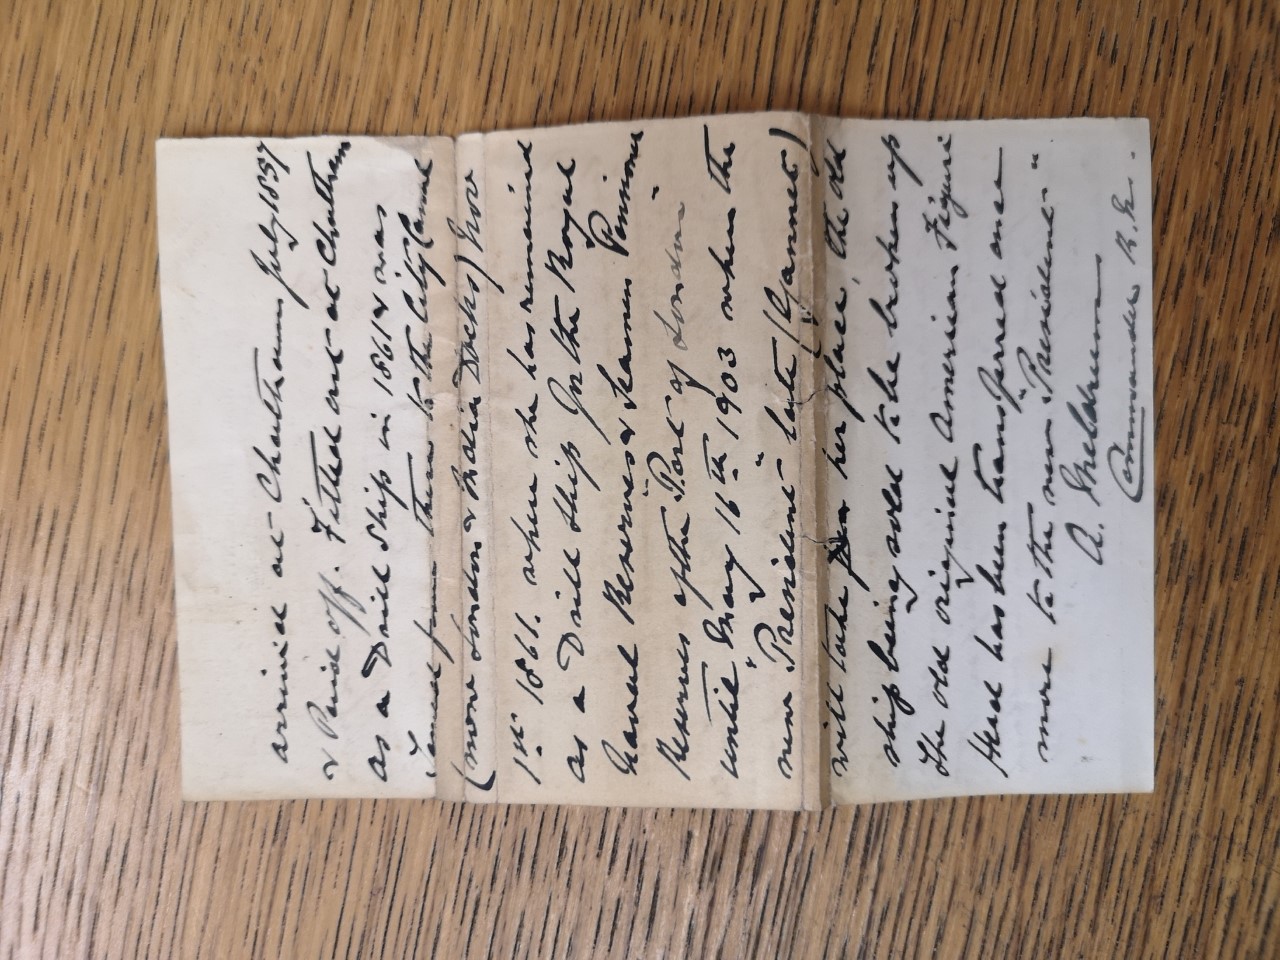 arrived at Chatham July 1857
& Paid off. Fitted out at Chatham
as a Drill Ship in 1861 & was
Towed from there to the City Canal
(now London & India Docks) Nov
1st 1861. where she has remained
as a Drill Ship for the Royal
Naval Reserves & Seamen Pensioner
Reserves of the "Port of London"
until May 16th 1903 when the
new "President" late (Gannet)
will take her place, the old
ship being sold to be broken up
The old original American Figure
Head has been transferred once
more to the new "President"
A.
Commander R.N.